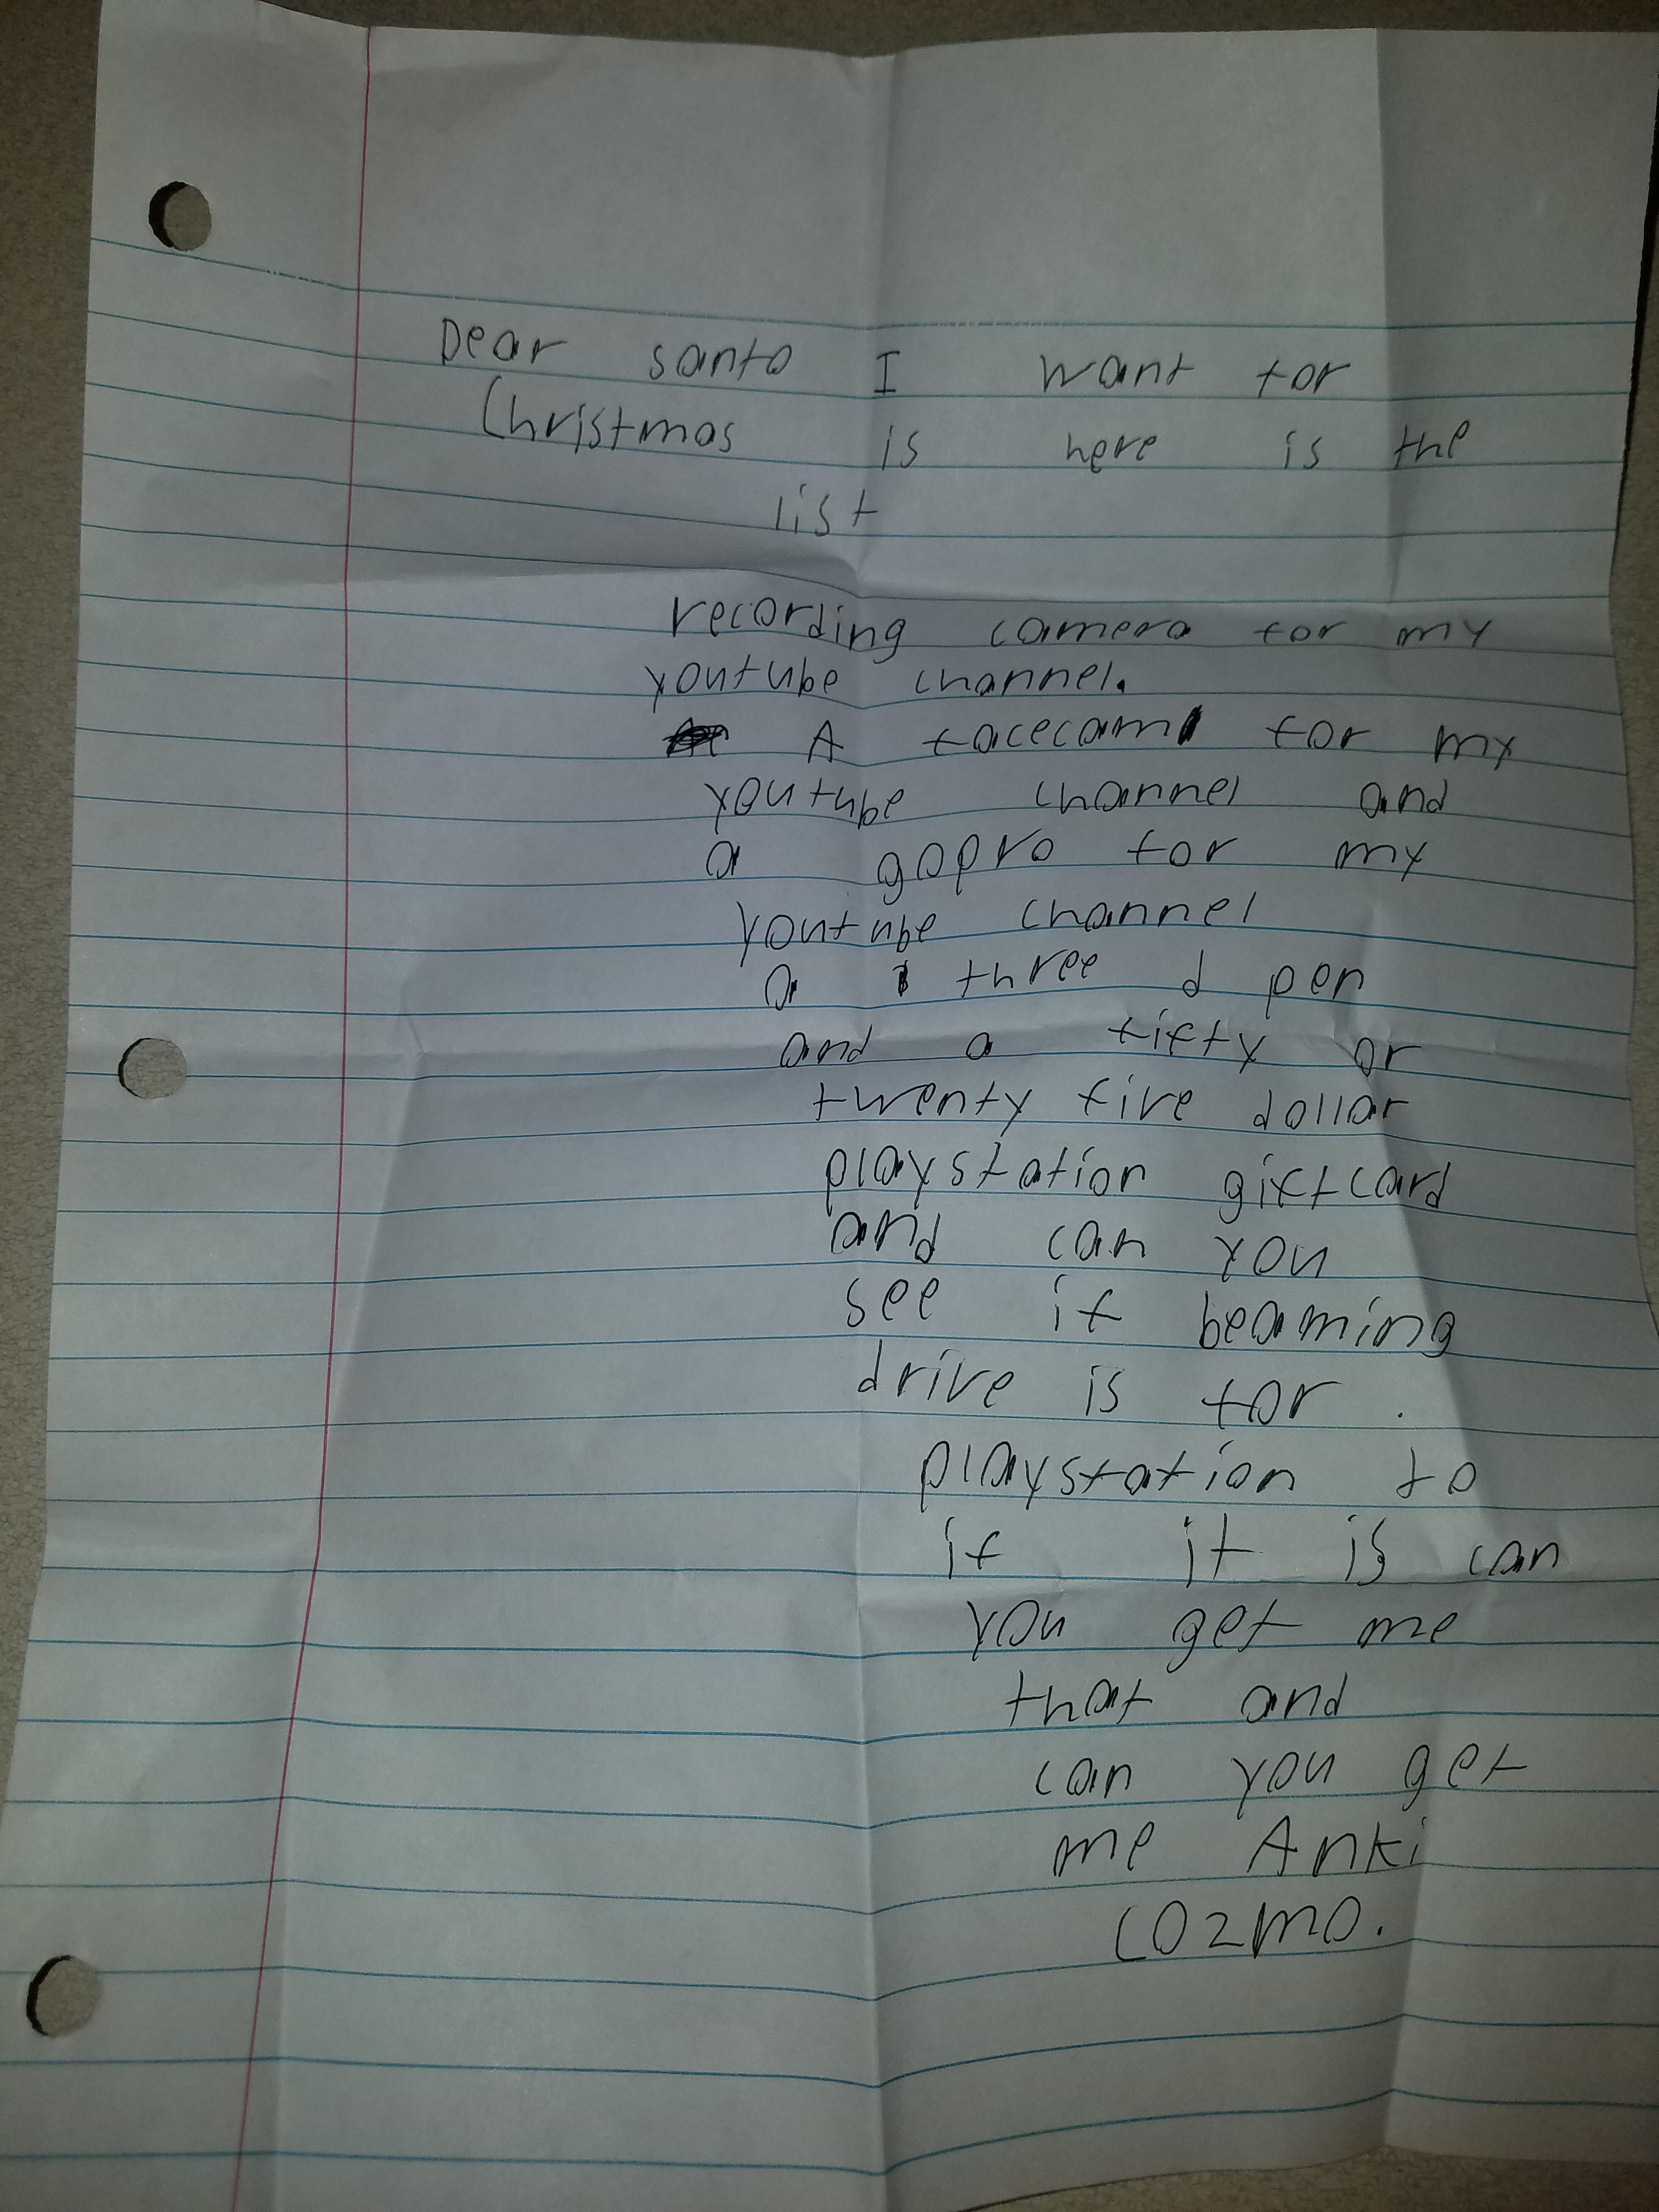 Dear santa I want for
Christmas is here is the
list
recording camera for my
youtube channel.
A facecam for my
youtube channel and
a gopro for my
youtube channel
a three d pen
and a fifty or
twenty five dollar
playstation giftcard
and can you
see if beaming
drive is for.
playstation to
if it is can
you get me
that and
can you get
me Anki
cozmo.